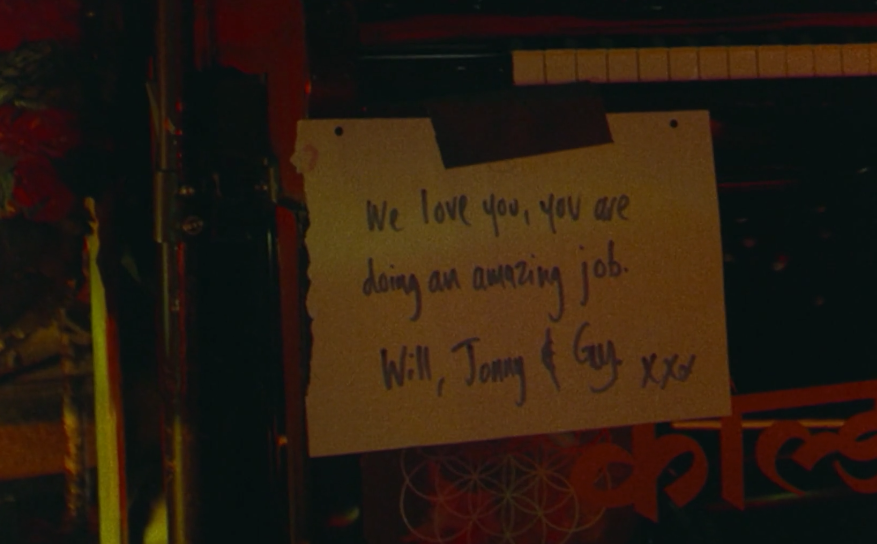 We love you, you are
doing an amazing job.
Will, Jonny & Guy. xxx